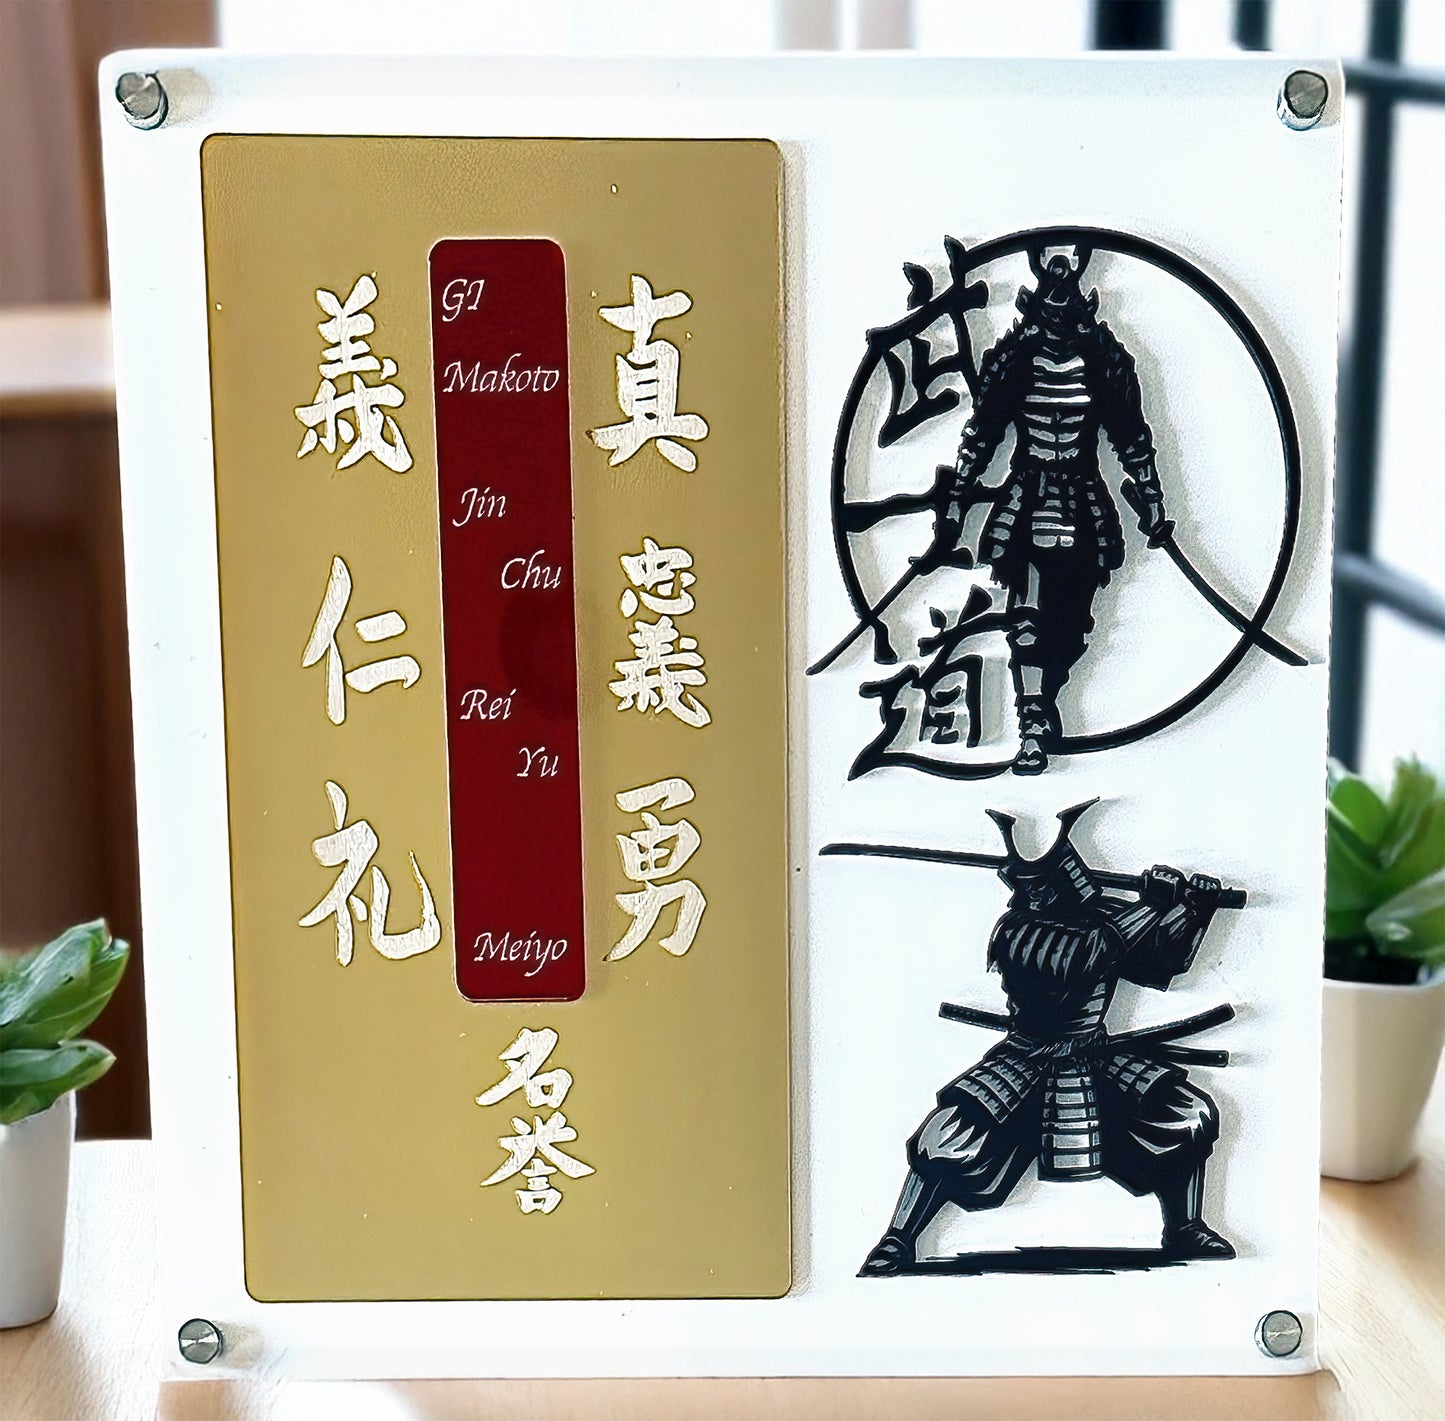 義
仁
礼
GI
Makoto
Jin
Chu
Rei
Yu
Meiyo
真
忠義
勇
名誉
武士道